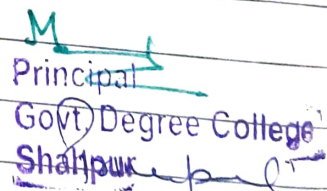 Principal
Govt. Degree College
Shahpur